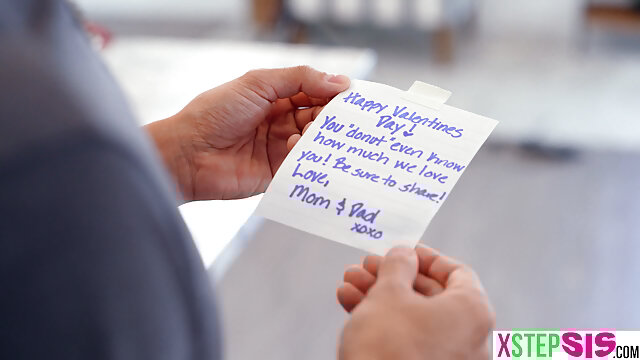 Happy Valentines
Day!
You "donut" even know
how much we love
you! Be sure to share!
Love,
Mom & Dad
xoxo
XSTEPSIS.COM